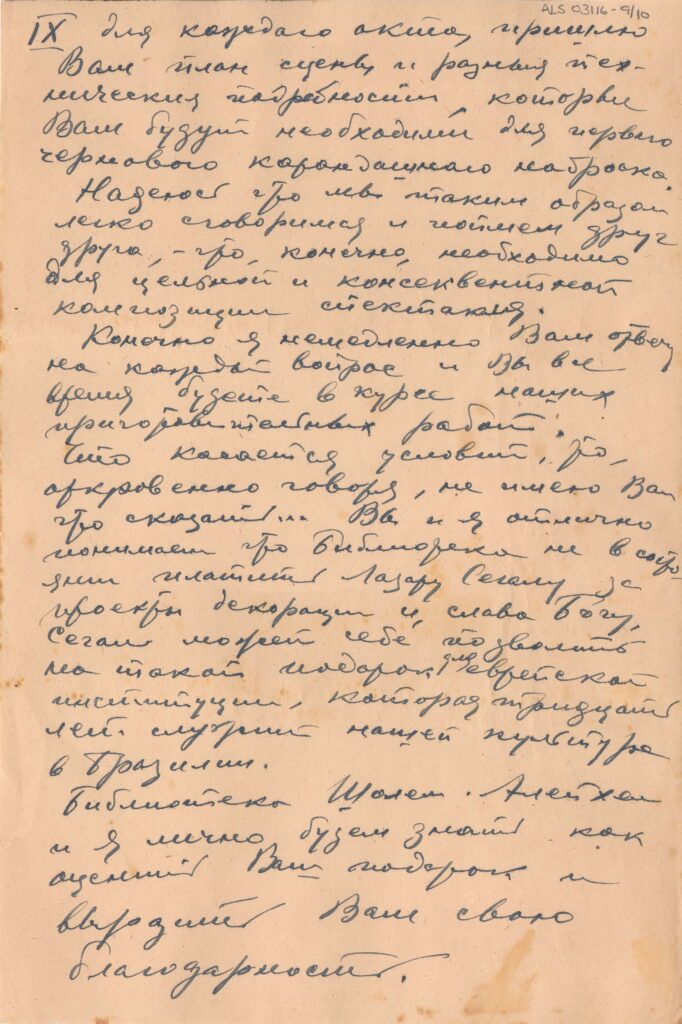 ALS 03116-9/10
IX для каждаго акта, пришлю
Вам план сцены и разныя тех-
ническия подребности, которыи
Вам будут необходими для первого
чернового карандашнаго наброска.
Надеюсь что мы таким образом
легко сговоримся и поймем друг
друга, - что, конечно, необходимо
для цельной и консеквентной
композиции спектакля.
Конечно я немедленно Вам отвечу
на каждый вопрос и Вы все
время будете в курсе наших
приготовительных работ.
Что касается условий, то,
откровенно говоря, не имею Вам
что сказать... Вы и я отлично
понимаем что Библиотека не в состо-
янии платить Лазару Сегалу за
проекты декорации и, слава Богу,
Сегал может себе позволить
на такой подарок для еврейской
институции, которая тридцать
лет служит нашей культуре
в Бразилии.
Библиотека Шолем-Алейхем
и я лично будем знать как
оценить Ваш подарок и
выразить Вам свою
благодарность.